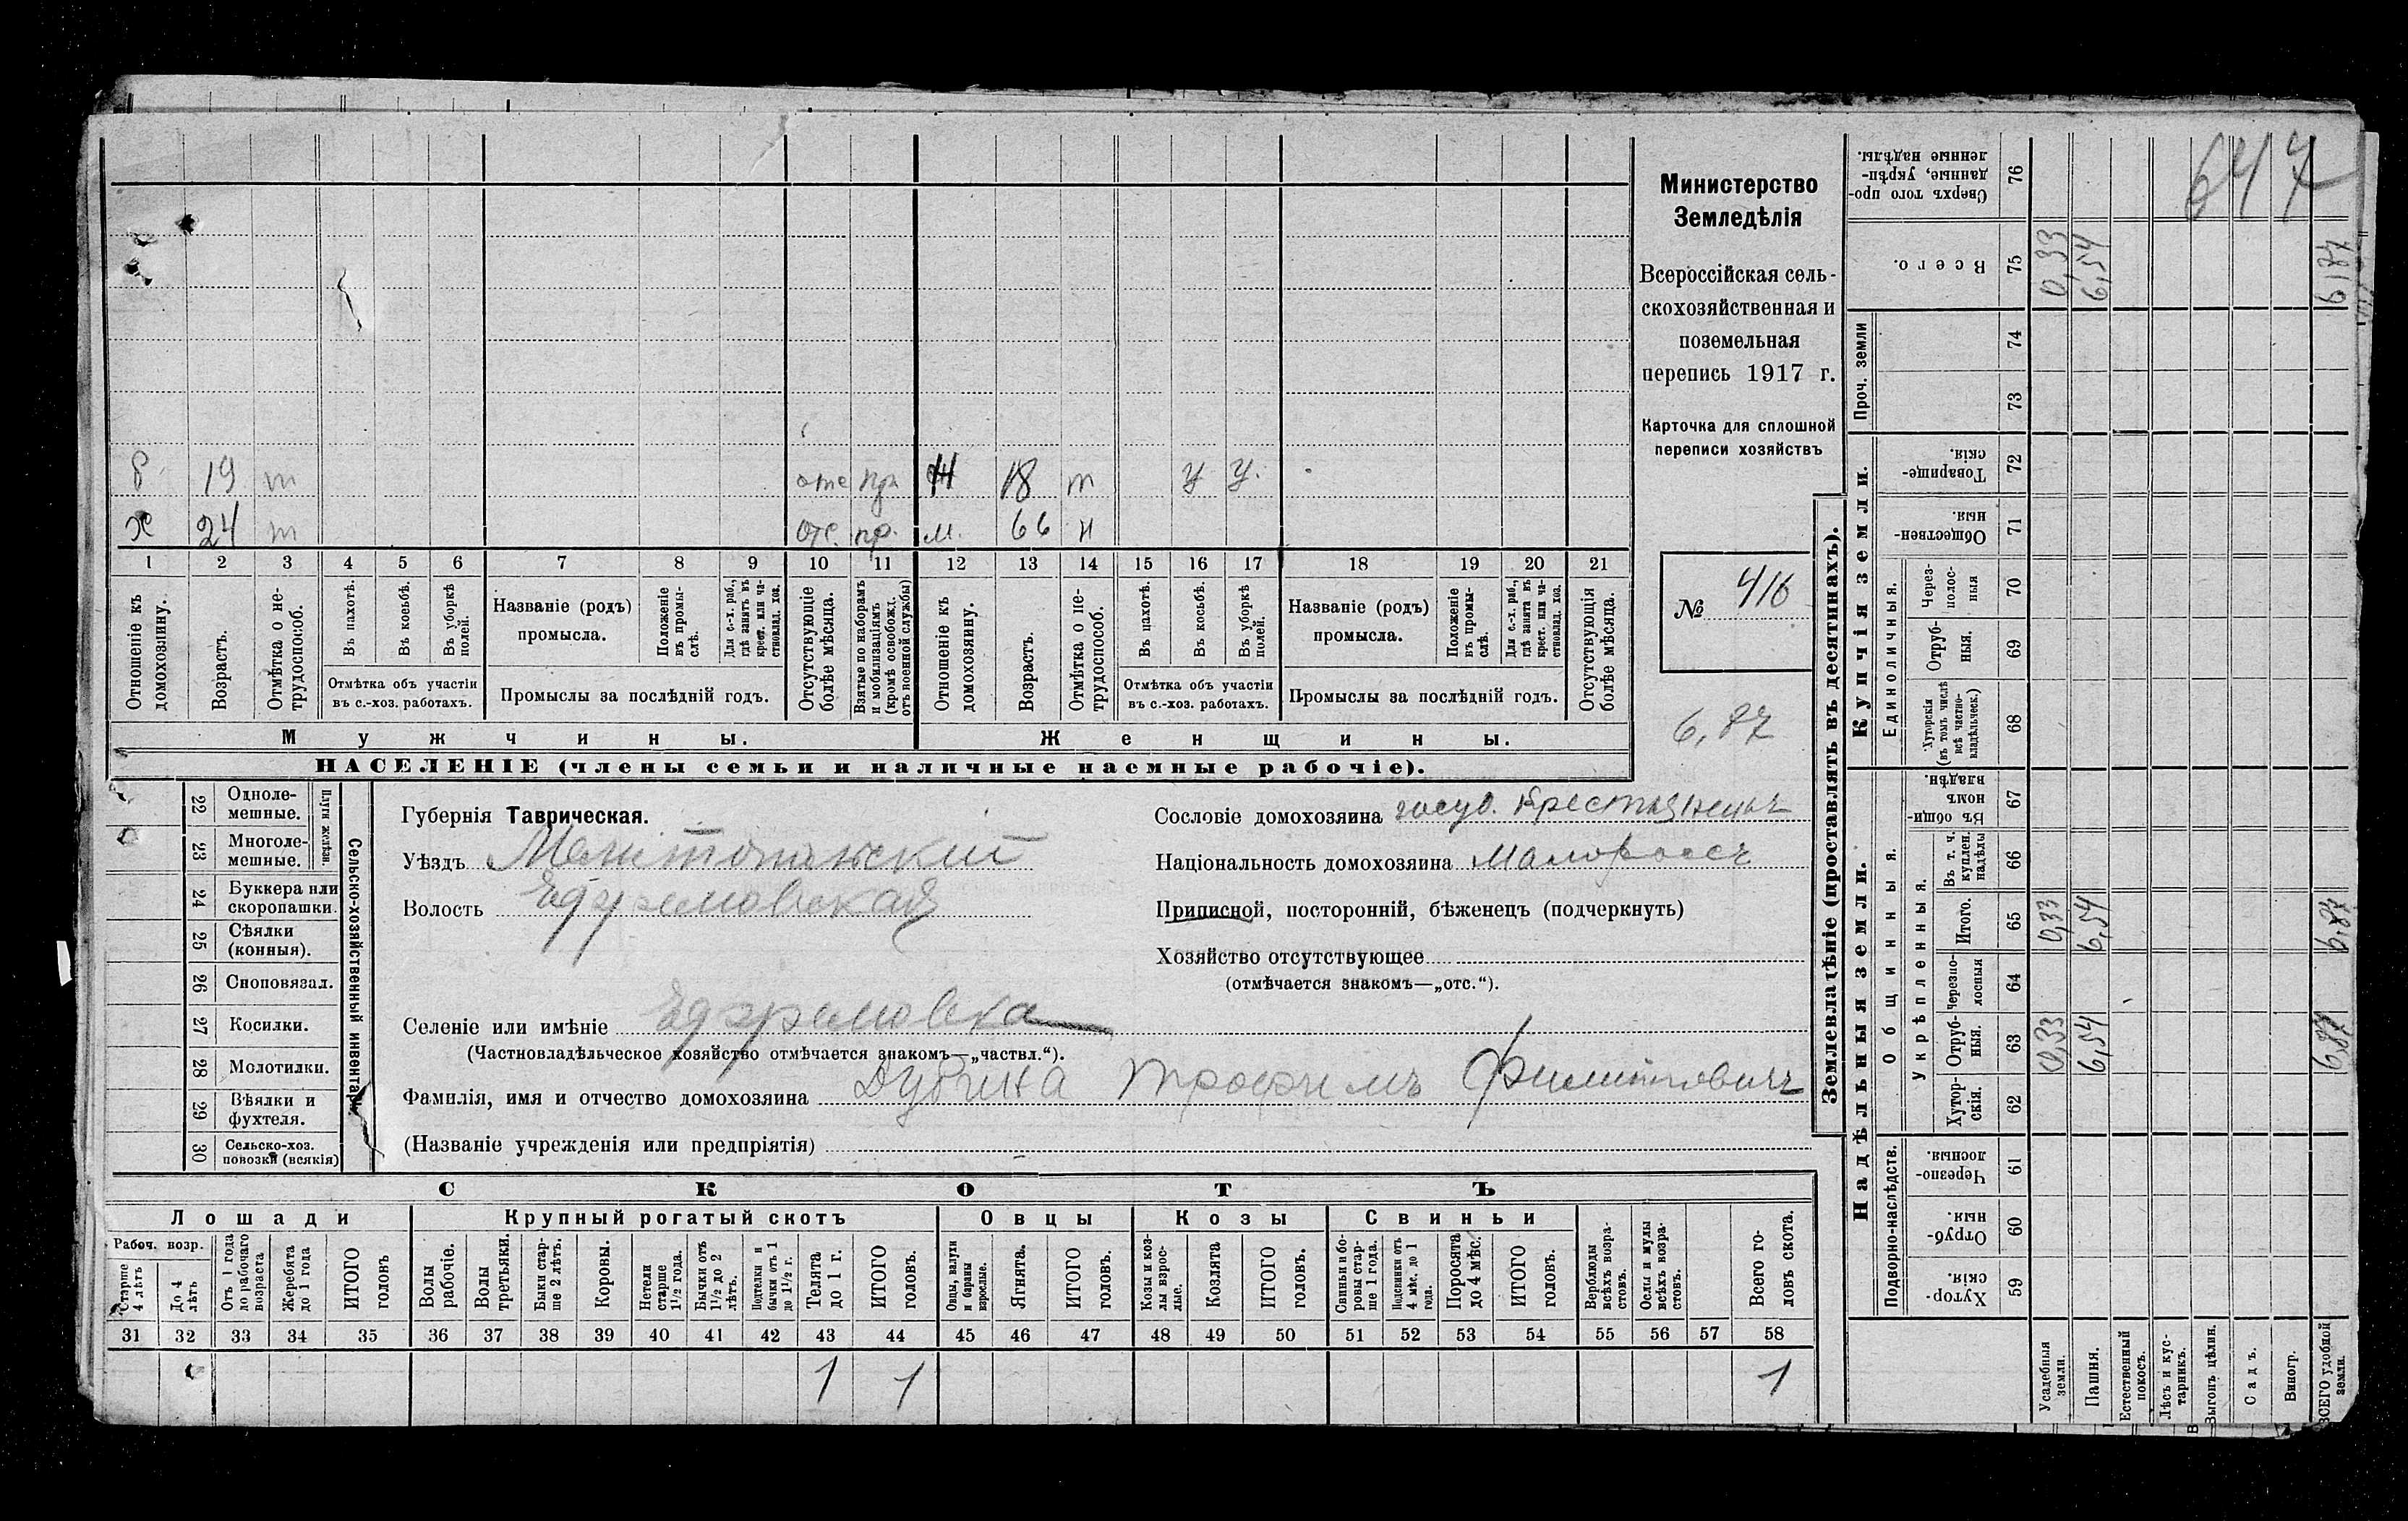 Министерство
Земледѣлія
Всероссійская сель-
скохозяйственная и
поземельная
перепись 1917 г.
Карточка для сплошной
переписи хозяйствъ
№ 416
6,87
б 19 т отс пр Н 18 т У У.
х 24 т отс. пр. м. 66 н
1 2 3 4 5 6 7 8 9 10 11 12 13 14 15 16 17 18 19 20 21
Отношеніе къ домохозяину.
Возрастъ.
Отмѣтка о не-трудоспособ.
Въ пахотѣ.
Въ косьбѣ.
Въ уборкѣ полей.
Отмѣтка объ участіи
въ с.-хоз. работахъ.
Названіе (родъ)
промысла.
Положеніе въ промы-слѣ.
Для с.-х. раб., гдѣ занятъ въ крест. или ча-стновлад. хоз.
Промыслы за послѣдній годъ.
Отсутствующіе болѣе мѣсяца.
Взятые по наборамъ и мобилизаціямъ (кромѣ освобожд. отъ военной службы)
Отношеніе къ домохозяину.
Возрастъ.
Отмѣтка о не-трудоспособ.
Въ пахотѣ.
Въ косьбѣ.
Въ уборкѣ полей.
Отмѣтка объ участіи
въ с.-хоз. работахъ.
Названіе (родъ)
промысла.
Положеніе въ промы-слѣ.
Для с.-х. раб., гдѣ занята въ крест. или ча-стновлад. хоз.
Промыслы за послѣдній годъ.
Отсутствующія болѣе мѣсяца.
Мужчины. Женщины.
НАСЕЛЕНІЕ (члены семьи и наличные наемные рабочіе).
Сельско-хозяйственный инвентарь.
Плуги желѣзн.
22 Одноле-мешные.
23 Многоле-мешные.
24 Буккера или скоропашки.
25 Сѣялки (конныя).
26 Сноповязал.
27 Косилки.
28 Молотилки.
29 Вѣялки и фухтеля.
30 Сельско-хоз. повозки (всякія)
Губернія Таврическая.
Уѣздъ Мелитопольскій
Волость Ефремовская
Селеніе или имѣніе Ефремовка
(Частновладѣльческое хозяйство отмѣчается знакомъ—„частвл.“).
Фамилія, имя и отчество домохозяина Дубина Трофимъ Филиповичъ
(Названіе учрежденія или предпріятія)
Сословіе домохозяина госуд. Крестьянецъ
Національность домохозяина Малороссъ
Приписной, посторонній, бѣженецъ (подчеркнуть)
Хозяйство отсутствующее
(отмѣчается знакомъ—„отс.“).
СКОТЪ
Лошади Крупный рогатый скотъ Овцы Козы Свиньи
Рабоч. возр.
Старше 4 лѣтъ
До 4 лѣтъ
Отъ 1 года до рабочаго возраста
Жеребята до 1 года
ИТОГО головъ
Волы рабочіе.
Волы третьяки.
Быки стар-ше 2 лѣтъ.
Коровы.
Нетели старше 1½ года.
Бычки отъ 1½ до 2 лѣтъ.
Подтелки и бычки отъ 1 до 1½ г.
Телята до 1 г.
ИТОГО головъ.
Овцы, валухи и бараны взрослые.
Ягнята.
ИТОГО головъ.
Козы и коз-лы взрос-лые.
Козлята
ИТОГО головъ.
Свиньи и бо-ровы стар-ше 1 года.
Подсвинки отъ 4 мѣс. до 1 года.
Поросята до 4 мѣс.
ИТОГО головъ.
Верблюды всѣхъ возра-стовъ.
Ослы и мулы всѣхъ возра-стовъ.
Всего го-ловъ скота.
31 32 33 34 35 36 37 38 39 40 41 42 43 44 45 46 47 48 49 50 51 52 53 54 55 56 57 58
1 1 1
647
Землевладѣніе (проставлять въ десятинахъ).
Надѣльныя земли. Купчія земли. Проч. земли
Подворно-наслѣдств.
Общинныя.
Укрѣпленныя.
Единоличныя.
Хутор-скія. 59
Отруб-ныя. 60
Черезпо-лосныя. 61
Хутор-скія. 62
Отруб-ныя. 63
Черезпо-лосныя 64
Итого. 65
Въ т. ч. куплен. надѣлы 66
Въ общин-номъ владѣн. 67
Хуторскія (въ томъ числѣ всѣ частно-владѣльческ.) 68
Отруб-ныя. 69
Через-полос-ныя 70
Обществен-ныя. 71
Товарище-скія. 72
73
74
Всего. 75
Сверхъ того про-данные, укрѣп-ленные надѣлы. 76
Усадебныя земли. 0,33 0,33 0,33
Пашня. 6,54 6,54 6,54
Естественный покосъ.
Лѣсъ и кус-тарникъ.
Выгонъ, цѣлин.
Садъ.
Виногр.
ВСЕГО удобной земли. 6,87 6,87 6,87